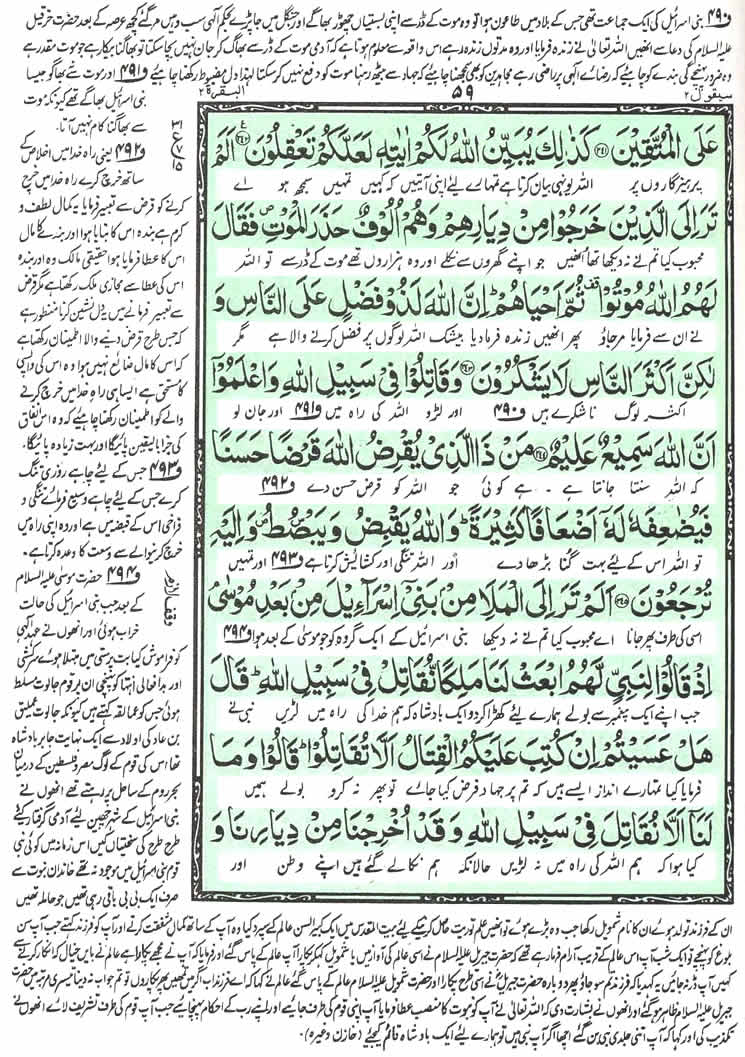 و۴۹۰ بنی اسرائیل کی ایک جماعت تھی جس کے بلاد میں طاعون ہوا تو وہ موت کے ڈر سے اپنی بستیاں چھوڑ بھاگے اور جنگل میں جا پڑے بحکم الٰہی سب وہیں مر گئے کچھ عرصہ کے بعد حضرت حزقیل
علیہ السلام کی دعا سے انھیں اللہ تعالٰی نے زندہ فرمایا اور وہ مدتوں زندہ رہے اس واقعہ سے معلوم ہوتا ہے کہ آدمی موت کے ڈر سے بھاگ کر جان نہیں بچا سکتا تو بھاگنا بیکار ہے جو موت مقدر ہے
وہ ضرور پہنچے گی بندے کو چاہیئے کہ رضائے الٰہی پر راضی رہے مجاہدین کو بھی سمجھنا چاہیئے کہ جہاد سے بیٹھ رہنا موت کو دفع نہیں کر سکتا لہذا دل مضبوط رکھنا چاہیئے و۴۹۱ اور موت سے نہ بھاگو جیسا
سیقول ۲
۵۹
البقرۃ ۲
بنی اسرائیل بھاگے تھے کیونکہ موت
سے بھاگنا کام نہیں آتا۔
و۴۹۲ یعنی راہ خدا میں اخلاص کے
ساتھ خرچ کرے راہ خدا میں خرچ
کرنے کو قرض سے تعبیر فرمایا یہ کمال لطف و
کرم ہے بندہ اس کا بنایا ہوا اور بندے کا مال
اس کا عطا فرمایا ہوا حقیقی مالک وہ اور بندہ
اس کی عطا سے مجازی ملک رکھتا ہے مگر قرض
سے تعبیر فرمانے میں یہ دل نشین کرنا منظور ہے
کہ جس طرح قرض دینے والا اطمینان رکھتا ہے
کہ اس کا مال ضائع نہیں ہوا وہ اس کی واپسی
کا مستحق ہے ایسا ہی راہ خدا میں خرچ کرنے
والے کو اطمینان رکھنا چاہیئے کہ وہ اس انفاق
کی جزا بالیقین پائیگا اور بہت زیادہ پائیگا۔
و۴۹۳ جس کے لئے چاہے روزی تنگ
کرے جس کے لئے چاہے وسیع فرمائے تنگی و
فراخی اس کے قبضہ میں ہے اور وہ اپنی راہ میں
خرچ کرنیوالے سے وسعت کا وعدہ کرتا ہے۔
و۴۹۴ حضرت موسٰی علیہ السلام
کے بعد جب بنی اسرائیل کی حالت
خراب ہوئی اور انھوں نے عہد الٰہی
کو فراموش کیا بت پرستی میں مبتلا ہوئے سرکشی
اور بدافعالی انتہا کو پہنچی ان پر قوم جالوت مسلط
ہوئی جس کو عمالقہ کہتے ہیں کیونکہ جالوت عملیق
بن عاد کی اولاد سے ایک نہایت جابر بادشاہ
تھا اس کی قوم کے لوگ مصر و فلسطین کے درمیان
بحر روم کے ساحل پر رہتے تھے انھوں نے
بنی اسرائیل کے شہر چھین لئے آدمی گرفتار کئے
طرح طرح کی سختیاں کیں اس زمانہ میں کوئی نبی
قوم بنی اسرائیل میں موجود نہ تھے خاندان نبوت سے
صرف ایک بی بی باقی رہی تھیں جو حاملہ تھیں
عَلَى الْمُتَّقِيْنَ ۲۴۱ كَذٰلِكَ يُبَيِّنُ اللّٰهُ لَكُمْ اٰيٰتِهٖ لَعَلَّكُمْ تَعْقِلُوْنَ ۲۴۲ اَلَمْ
پرہیزگاروں پر اللہ یونہی بیان کرتا ہے تمہارے لئے اپنی آیتیں کہ کہیں تمہیں سمجھ ہو اے
تَرَ اِلَى الَّذِيْنَ خَرَجُوْا مِنْ دِيَارِهِمْ وَهُمْ اُلُوْفٌ حَذَرَ الْمَوْتِ ص فَقَالَ
محبوب کیا تم نے نہ دیکھا تھا انھیں جو اپنے گھروں سے نکلے اور وہ ہزاروں تھے موت کے ڈر سے تو اللہ
لَهُمُ اللّٰهُ مُوْتُوْا قف ثُمَّ اَحْيَاهُمْ ؕ اِنَّ اللّٰهَ لَذُوْ فَضْلٍ عَلَى النَّاسِ وَ
نے ان سے فرمایا مر جاؤ پھر انھیں زندہ فرما دیا بیشک اللہ لوگوں پر فضل کرنے والا ہے مگر
لٰكِنَّ اَكْثَرَ النَّاسِ لَا يَشْكُرُوْنَ ۲۴۳ وَقَاتِلُوْا فِيْ سَبِيْلِ اللّٰهِ وَاعْلَمُوْۤا
اکثر لوگ ناشکرے ہیں و۴۹۰ اور لڑو اللہ کی راہ میں و۴۹۱ اور جان لو
اَنَّ اللّٰهَ سَمِيْعٌ عَلِيْمٌ ۲۴۴ مَنْ ذَا الَّذِيْ يُقْرِضُ اللّٰهَ قَرْضًا حَسَنًا
کہ اللہ سنتا جانتا ہے۔ ہے کوئی جو اللہ کو قرض حسن دے و۴۹۲
فَيُضٰعِفَهٗ لَهٗۤ اَضْعَافًا كَثِيْرَةً ؕ وَاللّٰهُ يَقْبِضُ وَيَبْصُۜطُ ص وَاِلَيْهِ
تو اللہ اس کے لئے بہت گنا بڑھا دے اور اللہ تنگی اور کشائش کرتا ہے و۴۹۳ اور تمہیں
تُرْجَعُوْنَ ۲۴۵ اَلَمْ تَرَ اِلَى الْمَلَاِ مِنْۢ بَنِيْۤ اِسْرَآءِيْلَ مِنْۢ بَعْدِ مُوْسٰى ۘ
اسی کی طرف پھر جانا اے محبوب کیا تم نے نہ دیکھا بنی اسرائیل کے ایک گروہ کو جو موسٰی کے بعد ہوا و۴۹۴
اِذْ قَالُوْا لِنَبِيٍّ لَّهُمُ ابْعَثْ لَنَا مَلِكًا نُّقَاتِلْ فِيْ سَبِيْلِ اللّٰهِ ؕ قَالَ
جب اپنے ایک پیغمبر سے بولے ہمارے لئے کھڑا کردو ایک بادشاہ کہ ہم خدا کی راہ میں لڑیں نبی نے
هَلْ عَسَيْتُمْ اِنْ كُتِبَ عَلَيْكُمُ الْقِتَالُ اَلَّا تُقَاتِلُوْا ؕ قَالُوْا وَمَا
فرمایا کیا تمہارے انداز ایسے ہیں کہ تم پر جہاد فرض کیا جائے تو پھر نہ کرو بولے ہمیں
لَنَاۤ اَلَّا نُقَاتِلَ فِيْ سَبِيْلِ اللّٰهِ وَقَدْ اُخْرِجْنَا مِنْ دِيَارِنَا وَ
کیا ہوا کہ ہم اللہ کی راہ میں نہ لڑیں حالانکہ ہم نکالے گئے ہیں اپنے وطن اور
ان کے فرزند تولد ہوئے ان کا نام شمویل رکھا جب وہ بڑے ہوئے تو انھیں علم توریت حاصل کرنیکے لئے بیت المقدس میں ایک کبیر السن عالم کے سپرد کیا وہ آپ کے ساتھ کمال شفقت کرتے اور آپ کو فرزند کہتے جب آپ سن
بلوغ کو پہنچے تو ایک شب آپ اس عالم کے قریب آرام فرما رہے تھے کہ حضرت جبریل علیہ السلام نے اسی عالم کی آواز میں یا شمویل کہہ کر پکارا آپ عالم کے پاس گئے اور فرمایا کہ آپ نے مجھے پکارا ہے عالم نے بایں خیال کہ انکار کرنے سے
کہیں آپ ڈر نہ جائیں یہ کہہ دیا کہ فرزند تم سو جاؤ پھر دوبارہ حضرت جبریل نے اسی طرح پکارا اور حضرت شمویل علیہ السلام عالم کے پاس گئے عالم نے کہا کہ اے فرزند اب اگر میں تمھیں پھر پکاروں تو تم جواب نہ دینا تیسری مرتبہ میں حضرت
جبریل علیہ السلام ظاہر ہو گئے اور انھوں نے بشارت دی کہ اللہ تعالٰی نے آپ کو نبوت کا منصب عطا فرمایا آپ اپنی قوم کی طرف جائیے اور اپنے رب کے احکام پہنچائیے جب آپ قوم کی طرف تشریف لائے انھوں نے
تکذیب کی اور کہا کہ آپ اتنی جلدی نبی بن گئے اچھا اگر آپ نبی ہیں تو ہمارے لئے ایک بادشاہ قائم کیجئے (خازن وغیرہ)۔